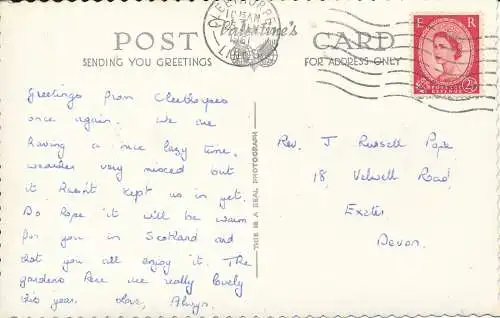 POST CARD
Valentine's
SENDING YOU GREETINGS
FOR ADDRESS ONLY
E R
CLEETHORPES
LINCS
10 15 AM
1961
POSTAGE REVENUE
2½D
Greetings from Cleethorpes
once again. We are
having a nice lazy time,
weather very mixed but
it hasn't kept us in yet.
Do hope it will be warm
for you in Scotland and
that you all enjoy it. The
gardens here are really lovely
this year. Love,
THIS IS A REAL PHOTOGRAPH
Rev. J Russell Pope
18, Velwell Road,
Exeter
Devon.